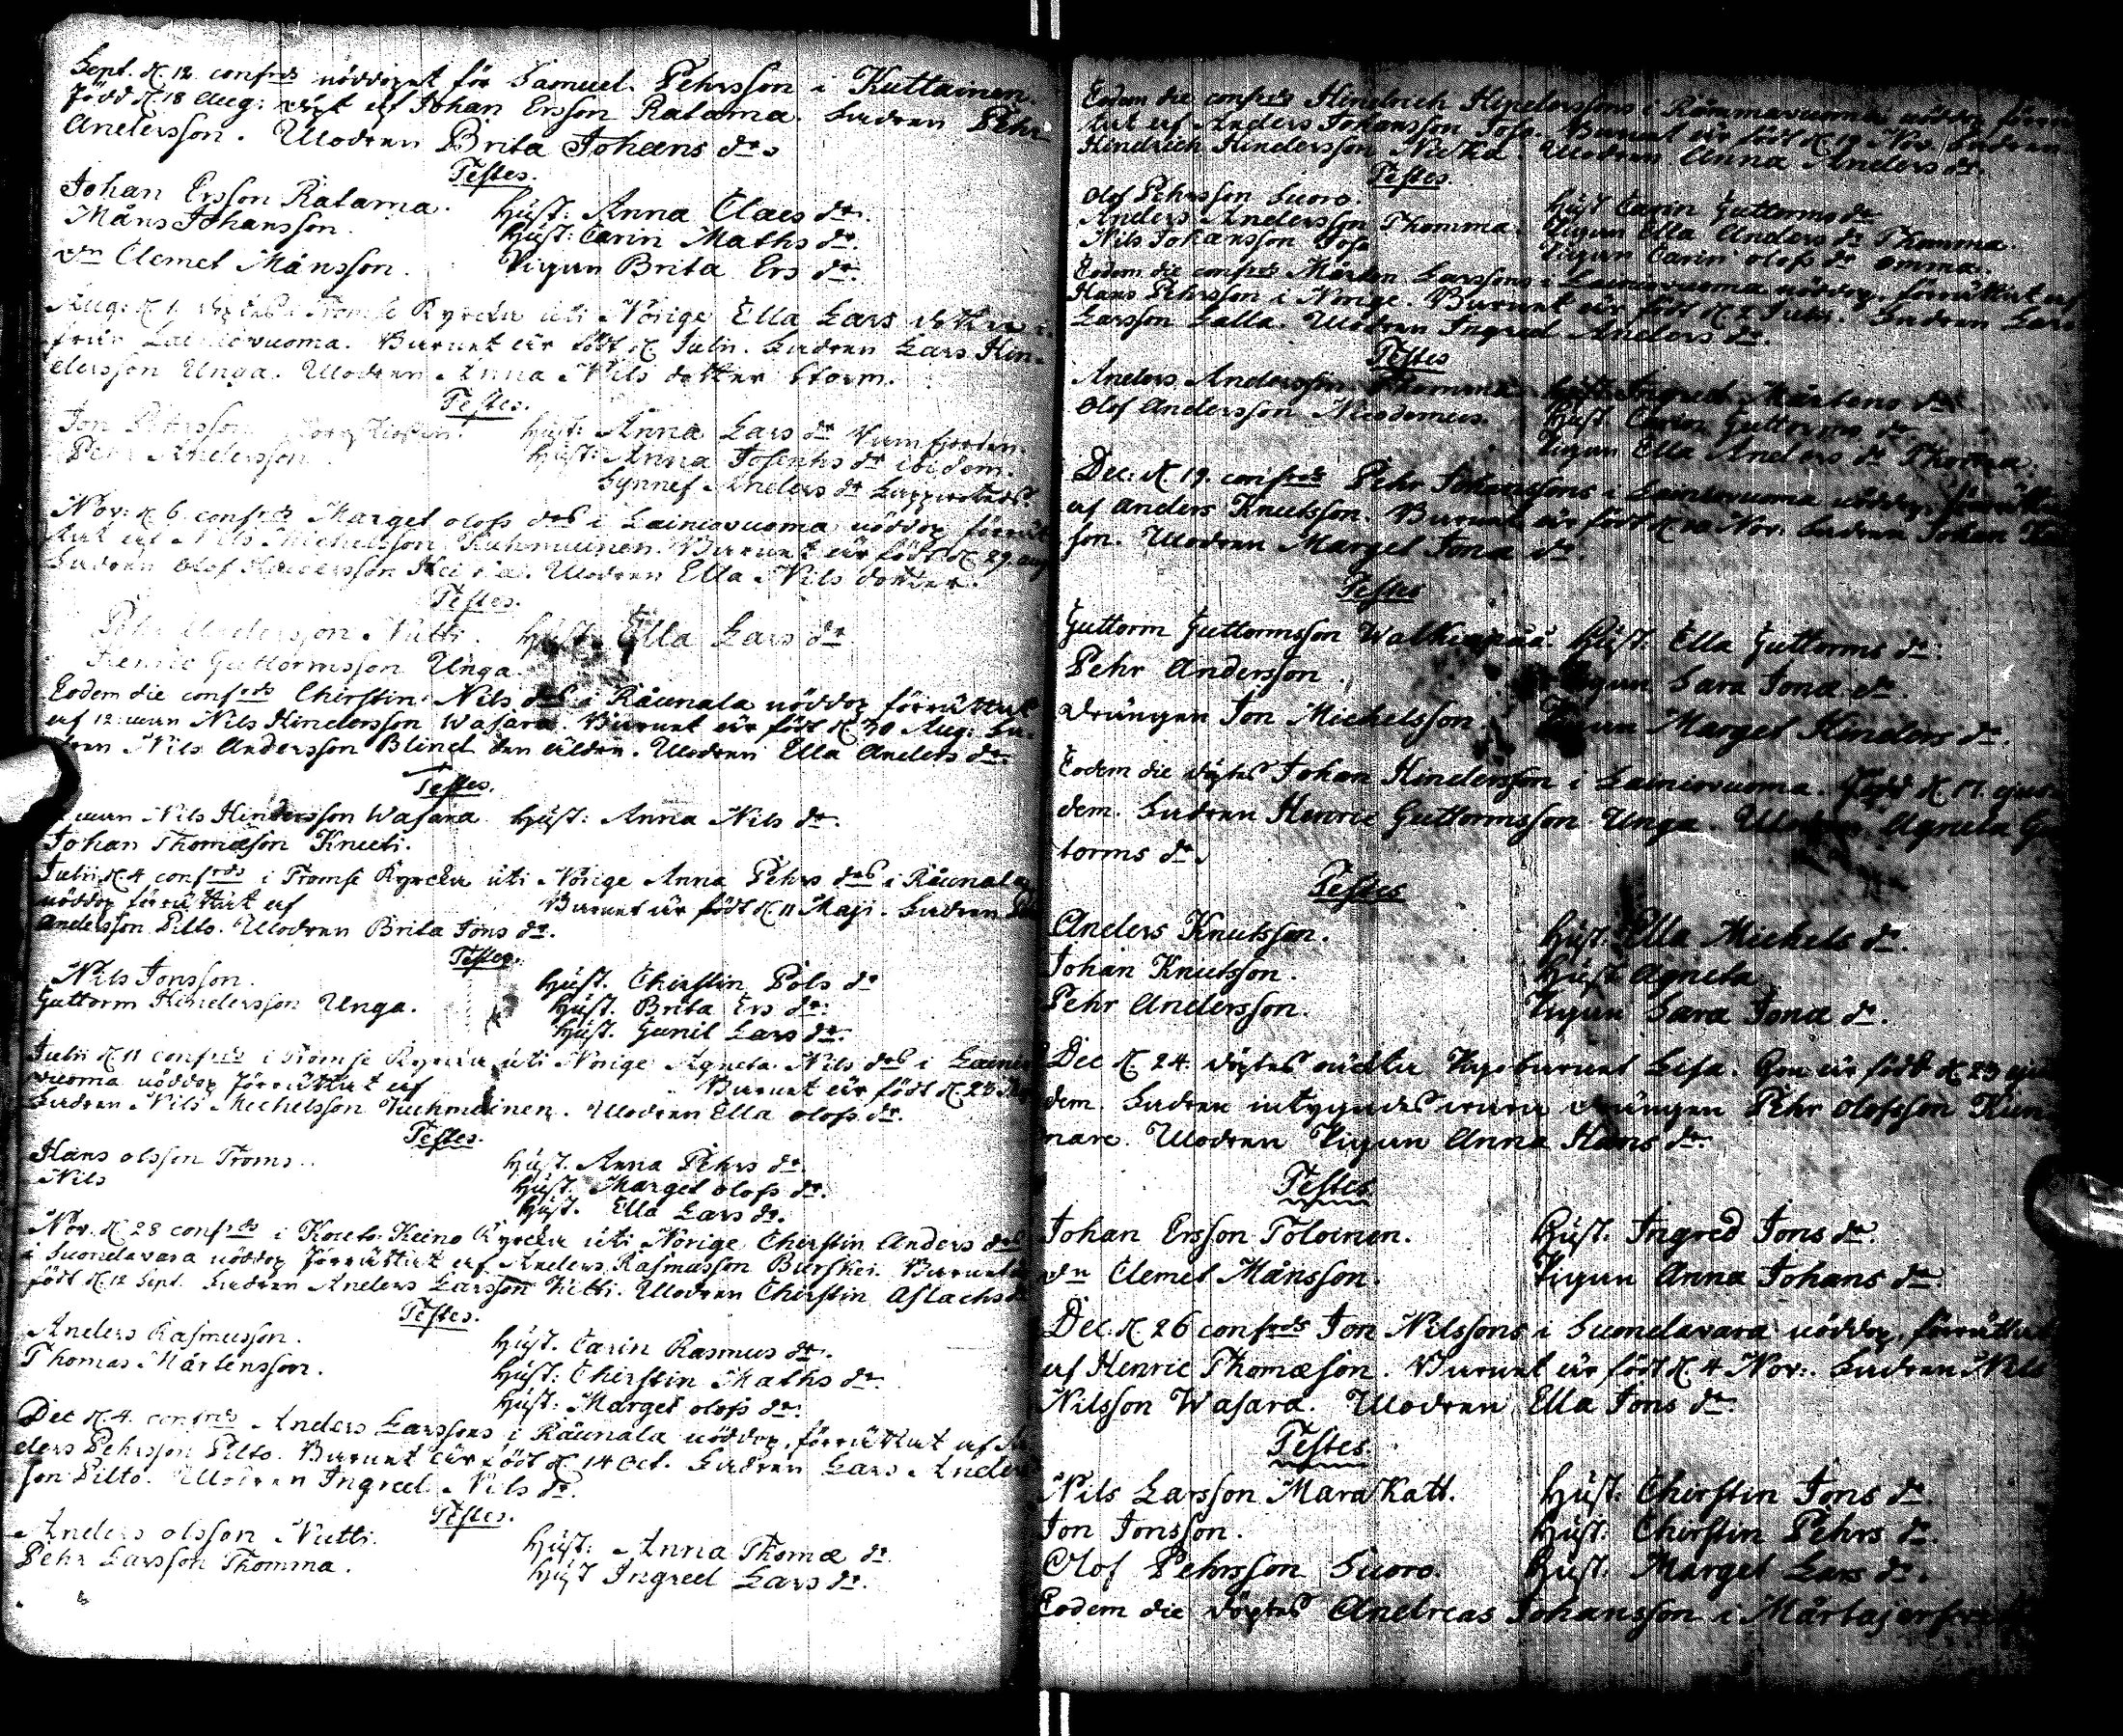 Sept. d. 12. confrds nöddopet för Samuel Pehrsson i Kuttainen.
född d. 18 Aug: döpt af Johan Ersson Ratama. Fadren Pehr
Andersson. Modren Brita Johans dr.
Testes.
Johan Ersson Ratama. Hust: Anna Claes dr.
Måns Johansson. Hust: Carin Maths dr.
dn Clemet Månsson. Pigan Brita Ers dr.
Aug: d. 1. döptes i Tromse Kyrcka uti Norige Ella Lars dotter
från Lainiovuoma. Barnet är födt d. Julii. Fadren Lars Hin-
dersson Unga. Modren Anna Nils dotter Storm.
Testes.
Jon Pehrsson Hust: Anna Lars dr
Pehr Andersson Hust: Anna Josephs dr ibidem.
Synnef Anders dr
Nov: d. 6. confrds Marget Olofs drs i Lainiovuoma nöddop förrät
tat af Nils Michelsson Kuhmuinen. Barnet är födt d. 29. aug
Fadren Olof Hindersson Modren Ella Nils dotter.
Testes.
Pehr Andersson Nutti. Hust: Ella Lars dr
Henric Guttormsson Unga.
Eodem die confrds Chirstin Nils drs i Råunala nöddop förrättat
af 12:man Nils Hindersson Wasara. Barnet är födt d. 30 Aug: Fa-
dren Nils Andersson Blind den äldre. Modren Ella Anders dr.
Testes.
man Nils Hindersson Wasara Hust: Anna Nils dr.
Johan Thomæson Knuti.
Julii d. 4 confrds i Tromse Kyrcka uti Norige Anna Pehrs drs i Råunala
nöddop förrättat af Barnet är födt d. 11 Maji. Fadren
Andersson Pilto. Modren Brita Jons dr.
Testes.
Nils Jonsson. Hust. Chirstin Pols dr
Guttorm Hindersson Unga. Hust. Brita Ers dr.
Hust. Gunil Lars dr.
Julii d. 11 confrds i Tromse Kyrcka uti Norige Agneta Nils drs i Lainio
vuoma nöddop förrättat af Barnet är födt d. 23
Fadren Nils Michelsson Kuhmuinen. Modren Ella Olofs dr.
Testes.
Hans Olsson Troms. Hust. Anna Pehrs dr.
Nils Hust. Marget Olofs dr.
Hust. Ella Lars dr.
Nov. d. 28 confrds i Kouto-Keino Kyrcka uti Norige Chirstin Anders drs
i Suondavara nöddop förrättat af Anders Rasmusson Burskei. Barnet
födt d. 12 Sept. Fadren Anders Larsson Kitti. Modren Chirstin Aslachs
Testes.
Anders Rasmusson. Hust. Carin Rasmus dr.
Thomas Mårtensson. Hust: Chirstin Maths dr.
Hust: Marget Olofs dr.
Dec d. 4. confrds Anders Larssons i Råunala nöddop, förrättat af An
ders Pehrsson Pilto. Barnet är födt d. 14 Oct. Fadren Lars Anders
son Pilto. Modren Ingred Nils dr.
Testes.
Anders Olsson Nutti. Hust: Anna Thomæ dr.
Pehr Larsson Thomma. Hust Ingred Lars dr.
Eodem die confrds Hindrich Hindersssons i Rommavuoma nöddop förrät
tat af Anders Johansson Joso. Barnet är födt d. 19 Nov. Fadren
Hindrich Hindersson Modren Anna Anders dr.
Testes.
Olof Pehrsson Suoro. Hust Carin Guttorms dr
Anders Andersson Thomma. Pigan Ella Anders dr Thomma.
Nils Johansson Joso Pigan Carin Olofs dr Omma.
Eodem die confrds Mårten Larssons i Lainiovuoma nöddop. förrättat af
Hans Pehrsson i Norige. Barnet är födt d. 2 Julii. Fadren Lars
Larsson Lalla. Modren Ingred Anders dr.
Testes
Anders Andersson Thomma Hust: Ingred Mårtens dr
Olof Andersson Nicodemus. Hust. Carin Guttorms dr.
Pigan Ella Anders dr Thomma.
Dec: d. 19. confrds Pehr Johanssons i Lainiovuoma nöddop. förrätta
af Anders Knutsson. Barnet är födt d. 20 Nov. Fadren Johan
son. Modren Marget Jonæ dr.
Testes
Guttorm Guttormsson Walkiapää. Hust: Ella Guttorms dr.
Pehr Andersson. Pigan Sara Jonæ dr.
Drängen Jon Michelsson. Pigan Marget Hinders dr.
Eodem die döptes Johan Hindersson i Lainiovuoma. Född d. 17. ejus
dem. Fadren Henric Guttormsson Unga. Modren Agneta Gut
torms dr.
Testes
Anders Knutsson. Hust. Ella Michels dr.
Johan Knutsson. Hust. Agneta
Pehr Andersson. Pigan Sara Jonæ dr.
Dec d. 24. döptes oächta Pigobarnet Lisa. Hon är född d. 23 ejus
dem. Fadren intygades wara drängen Pehr Olofsson Kun-
nare. Modren Pigan Anna Hans dr.
Testes
Johan Ersson Toloinen. Hust. Ingred Jons dr.
dn Clemet Månsson. Pigan Anna Johans dr.
Dec. d. 26 confrds Jon Nilssons i Suondavara nöddop, förrättat
af Henric Thomæson. Barnet är födt d. 4 Nov:. Fadren Nils
Nilsson Wasara. Modren Ella Jons dr.
Testes.
Nils Larsson Mara Katt. Hust: Chirstin Jons dr.
Jon Jonsson. Hust. Chirstin Pehrs dr.
Olof Pehrsson Suoro. Hust. Marget Lars dr.
Eodem die döptes Andreas Johansson i